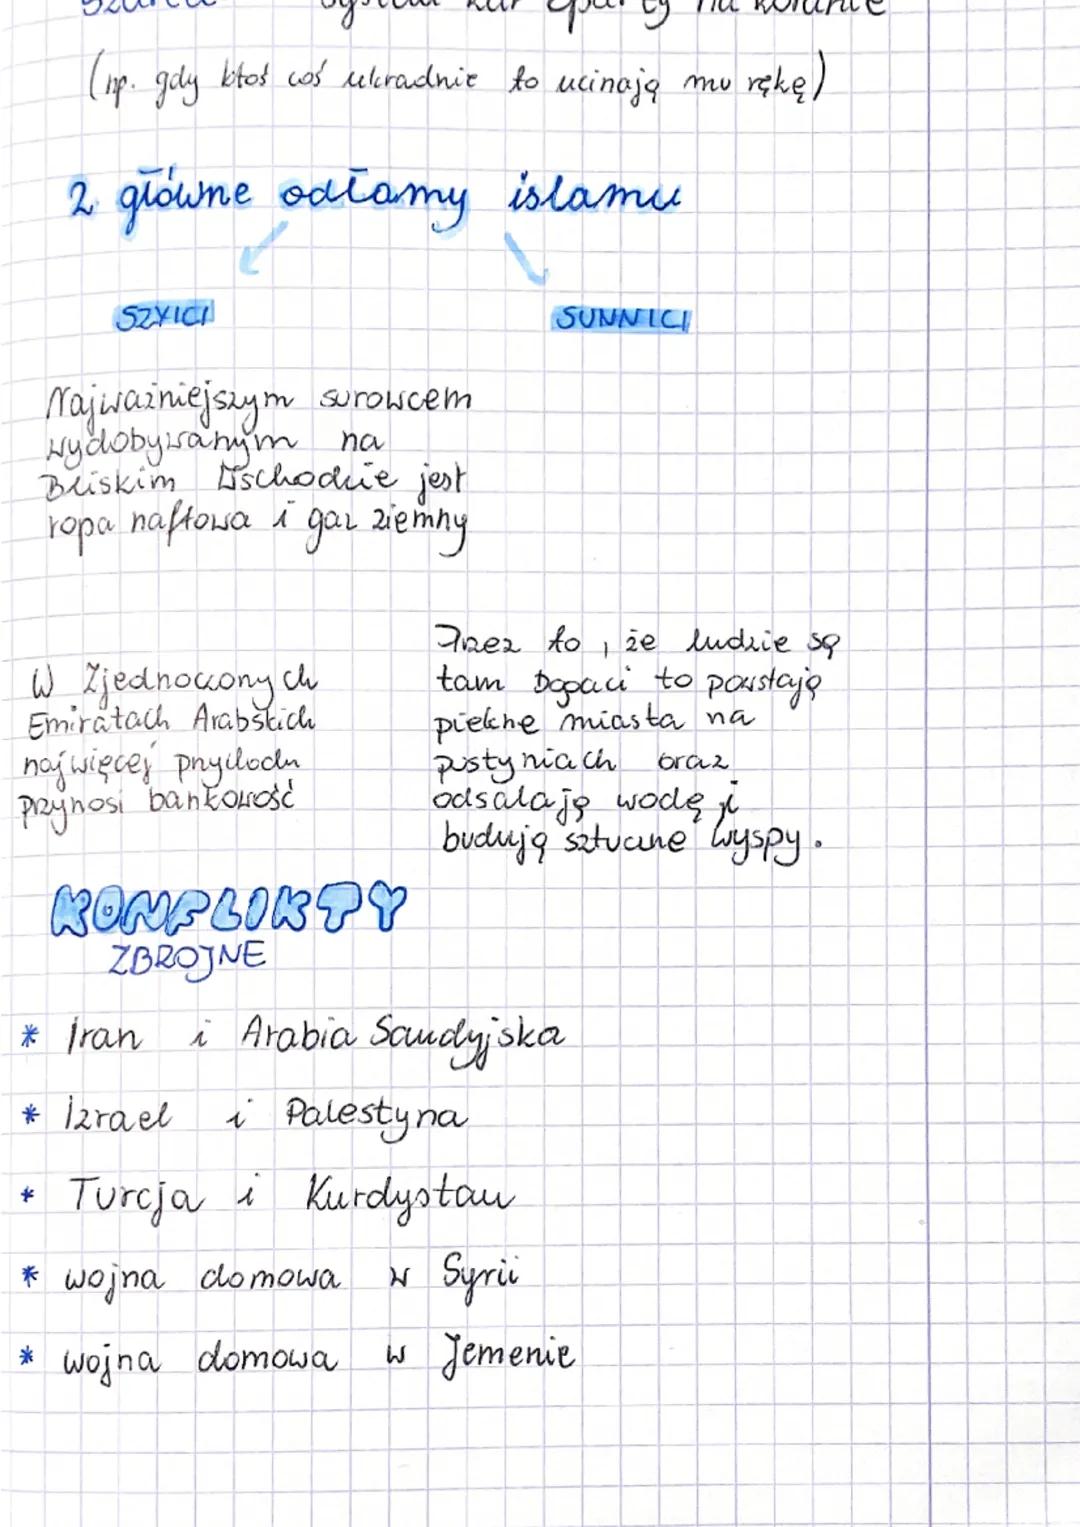 system kar oparty na koranie
(np. gdy ktoś coś ukradnie to ucinają mu rękę)
2 główne odłamy islamu
SZYICI
SUNNICI
Najważniejszym surowcem
wydobywanym na
Bliskim Wschodzie jest
ropa naftowa i gaz ziemny
W Zjednoczonych
Emiratach Arabskich
najwięcej przychodu
przynosi bankowość
Przez to, że ludzie są
tam bogaci to powstają
piękne miasta na
pustyniach oraz
odsalają wodę i
budują sztuczne wyspy.
KONFLIKTY
ZBROJNE
* Iran i Arabia Saudyjska
* Izrael i Palestyna
* Turcja i Kurdystan
* wojna domowa w Syrii
* wojna domowa w Jemenie